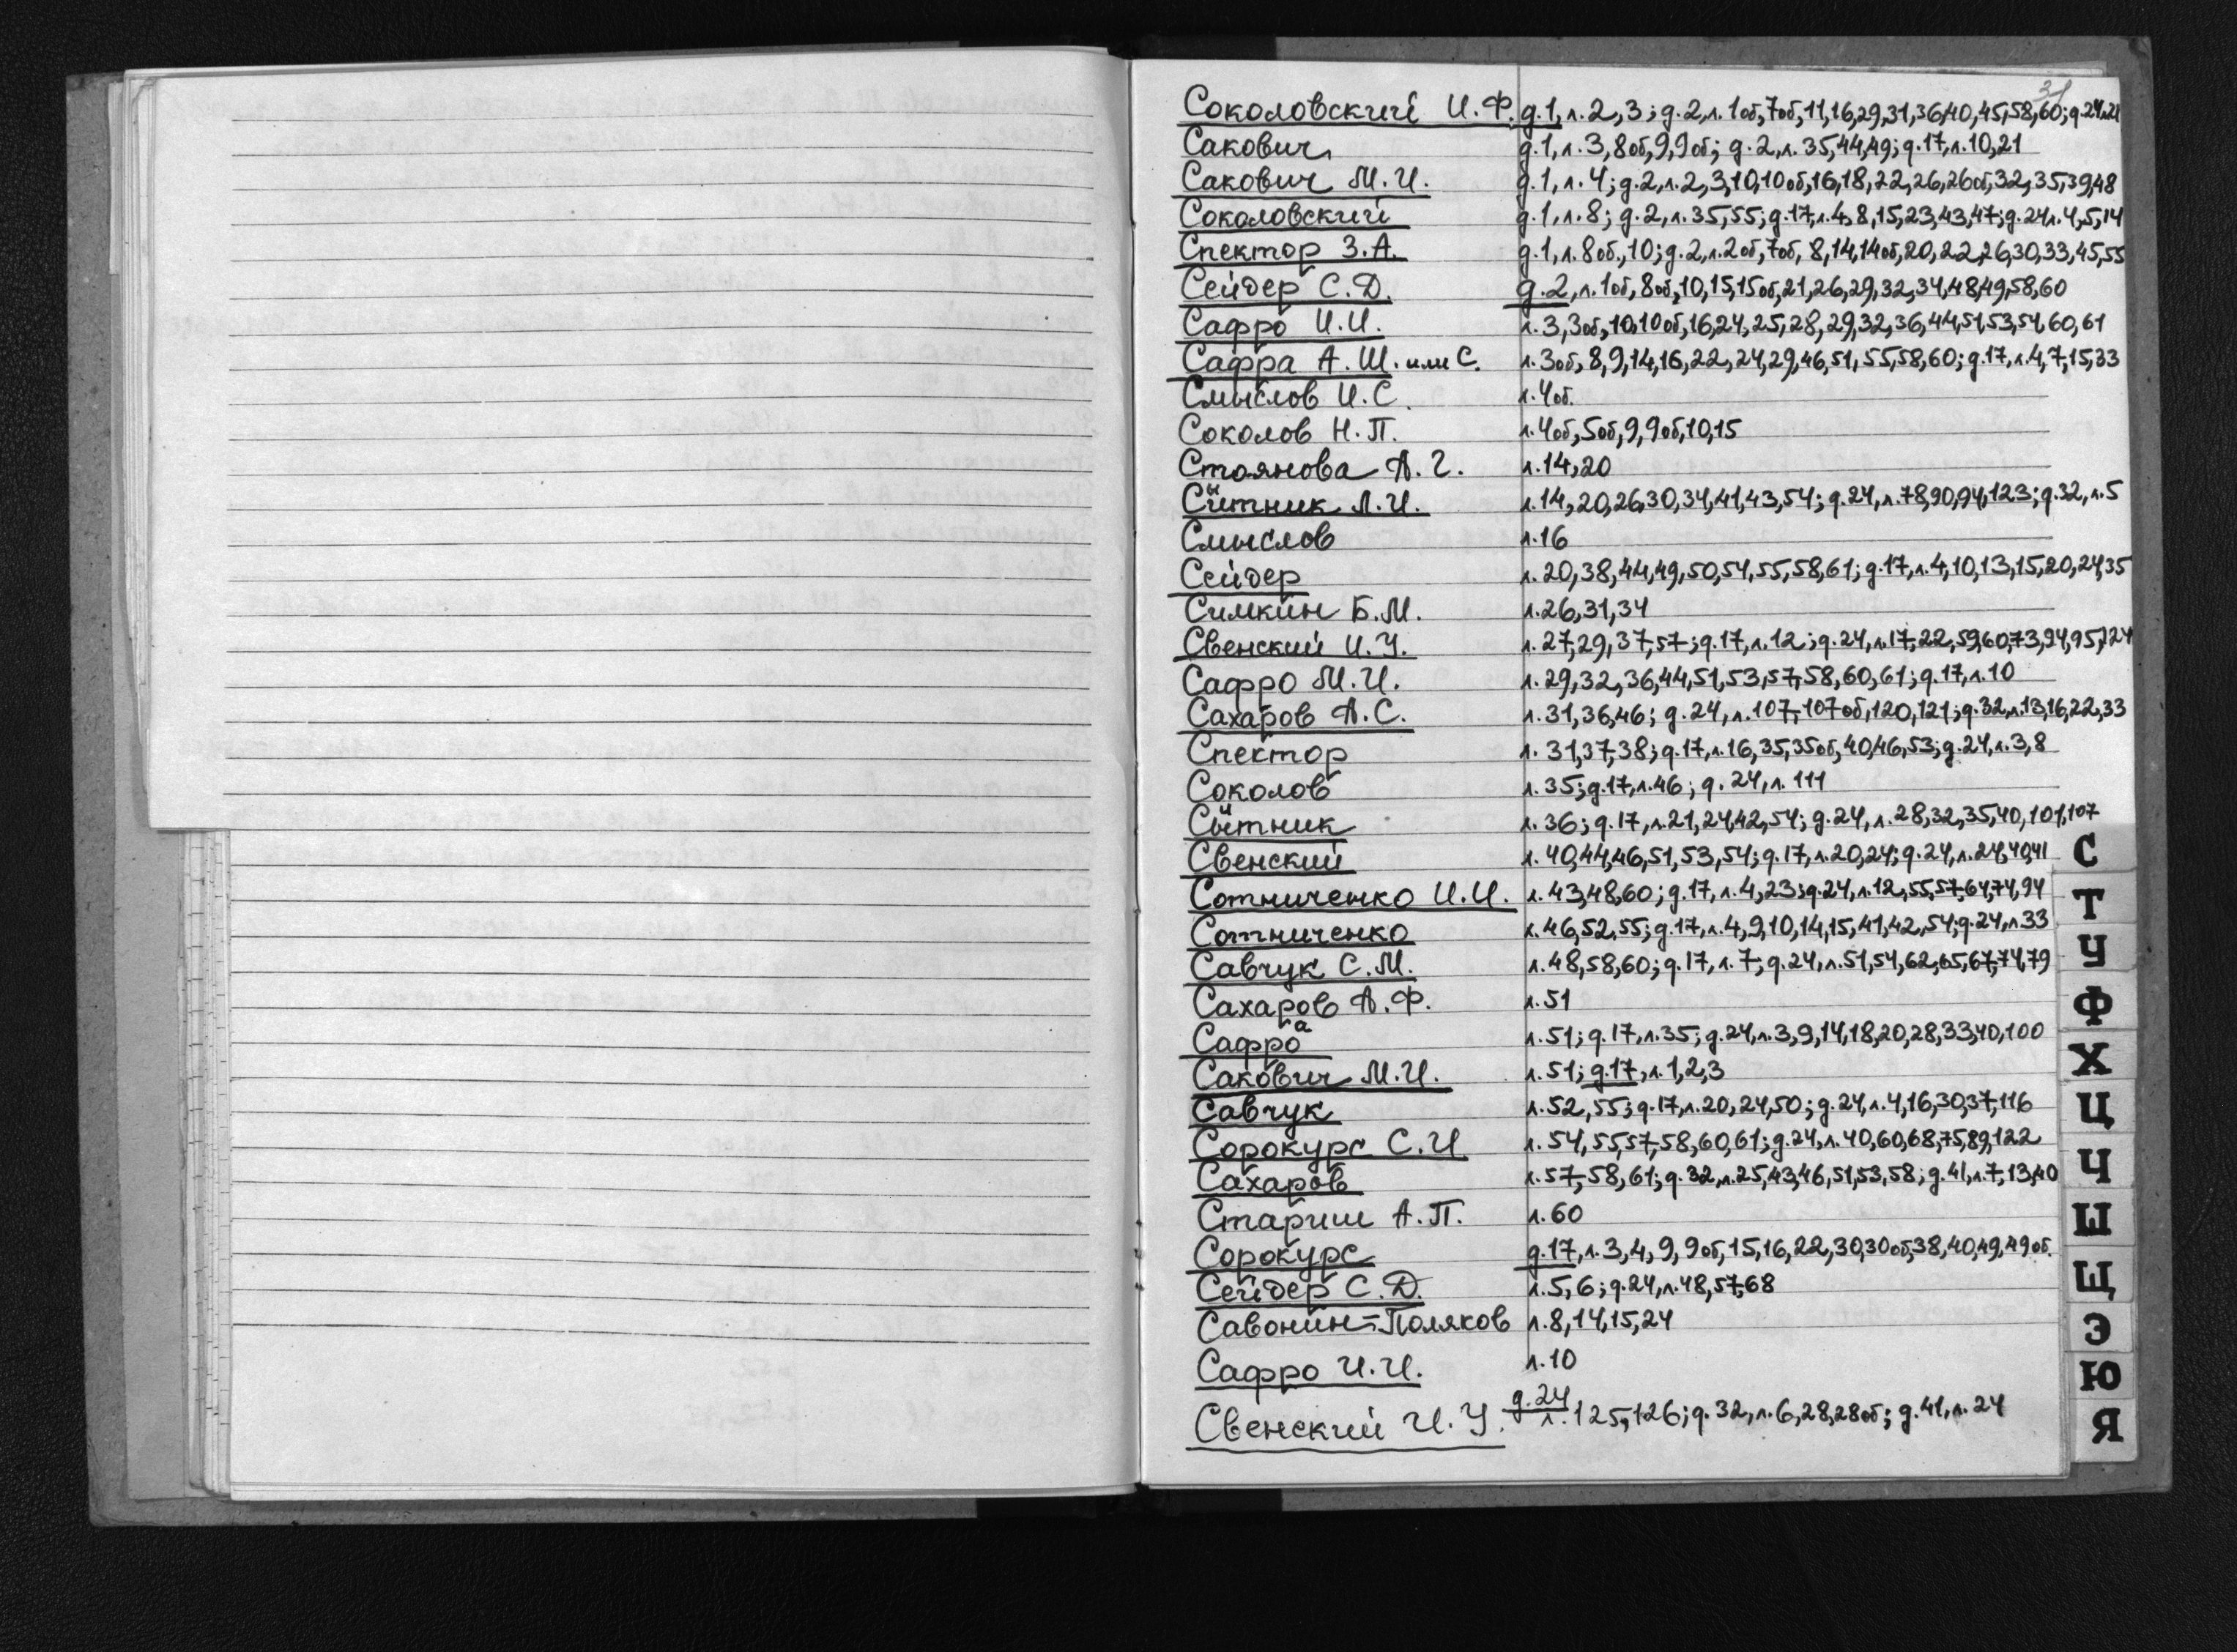 31
Соколовский И.Ф. д.1, л.2,3; д.2,л.1об,7об,11,16,29,31,36,40,45,58,60; д.24,л.21
Сакович д.1, л.3,8об,9,9об; д.2,л.35,44,49; д.17,л.10,21
Сакович М.И. д.1, л.4; д.2,л.2,3,10,10об,16,18,22,26,26об,32,35,39,48
Соколовский д.1, л.8; д.2, л.35,55; д.17,л.4,8,15,23,43,47; д.24 л.4,5,14
Спектор З.А. д.1, л.8об.,10; д.2,л.2об,7об,8,14,14об,20,22,26,30,33,45,55
Сейдер С.Д. д.2, л.1об,8об,10,15,15об,21,26,29,32,34,48,49,58,60
Сафро И.И. л.3,3об,10,10об,16,24,25,28,29,32,36,44,51,53,54,60,61
Сафра А.Ш. или С. л.3об,8,9,14,16,22,24,29,46,51,55,58,60; д.17,л.4,7,15,33
Смыслов И.С. л.4об.
Соколов Н.П. л.4об,5об,9,9об,10,15
Стоянова А.Г. л.14,20
Сытник Л.И. л.14,20,26,30,34,41,43,54; д.24, л.78,90,94,123; д.32, л.5
Смыслов л.16
Сейдер л.20,38,44,49,50,54,55,58,61; д.17,л.4,10,13,15,20,24,35
Симкин Б.М. л.26,31,34
Свенский И.У. л.27,29,37,57; д.17,л.12; д.24,л.17,22,59,60,73,94,95,124
Сафро М.И. л.29,32,36,44,51,53,57,58,60,61; д.17,л.10
Сахаров А.С. л.31,36,46; д.24, л.107,107об,120,121; д.32,л.13,16,22,33
Спектор л.31,37,38; д.17,л.16,35,35об,40,46,53; д.24,л.3,8
Соколов л.35; д.17,л.46; д.24, л.111
Сытник л.36; д.17,л.21,24,42,54; д.24, л.28,32,35,40,101,107
Свенский л.40,44,46,51,53,54; д.17,л.20,24; д.24,л.24,40,41
Сотниченко И.И. л.43,48,60; д.17, л.4,23; д.24,л.12,55,57,64,74,94
Сотниченко л.46,52,55; д.17,л.4,9,10,14,15,41,42,54; д.24,л33
Савчук С.М. л.48,58,60; д.17, л.7; д.24,л.51,54,62,65,67,74,79
Сахаров А.Ф. л.51
а
Сафро л.51; д.17,л.35; д.24,л.3,9,14,18,20,28,33,40,100
Сакович М.И. л.51; д.17, л.1,2,3
Савчук л.52,55; д.17,л.20,24,50; д.24,л.4,16,30,37,116
Сорокурс С.И л.54,55,57,58,60,61; д.24,л.40,60,68,75,89,122
Сахаров л.57,58,61; д.32,л.25,43,46,51,53,58; д.41,л.7,13,40
Стариш А.П. л.60
Сорокурс д.17, л.3,4,9,9об,15,16,22,30,30об,38,40,49,49об.
Сейдер С.Д. л.5,6; д.24,л.48,57,68
Савонин-Поляков л.8,14,15,24
Сафро И.И. л.10
Свенский И.У. д.24 л.125,126; д.32, л.6,28,28об; д.41, л.24
С
Т
У
Ф
Х
Ц
Ч
Ш
Щ
Э
Ю
Я